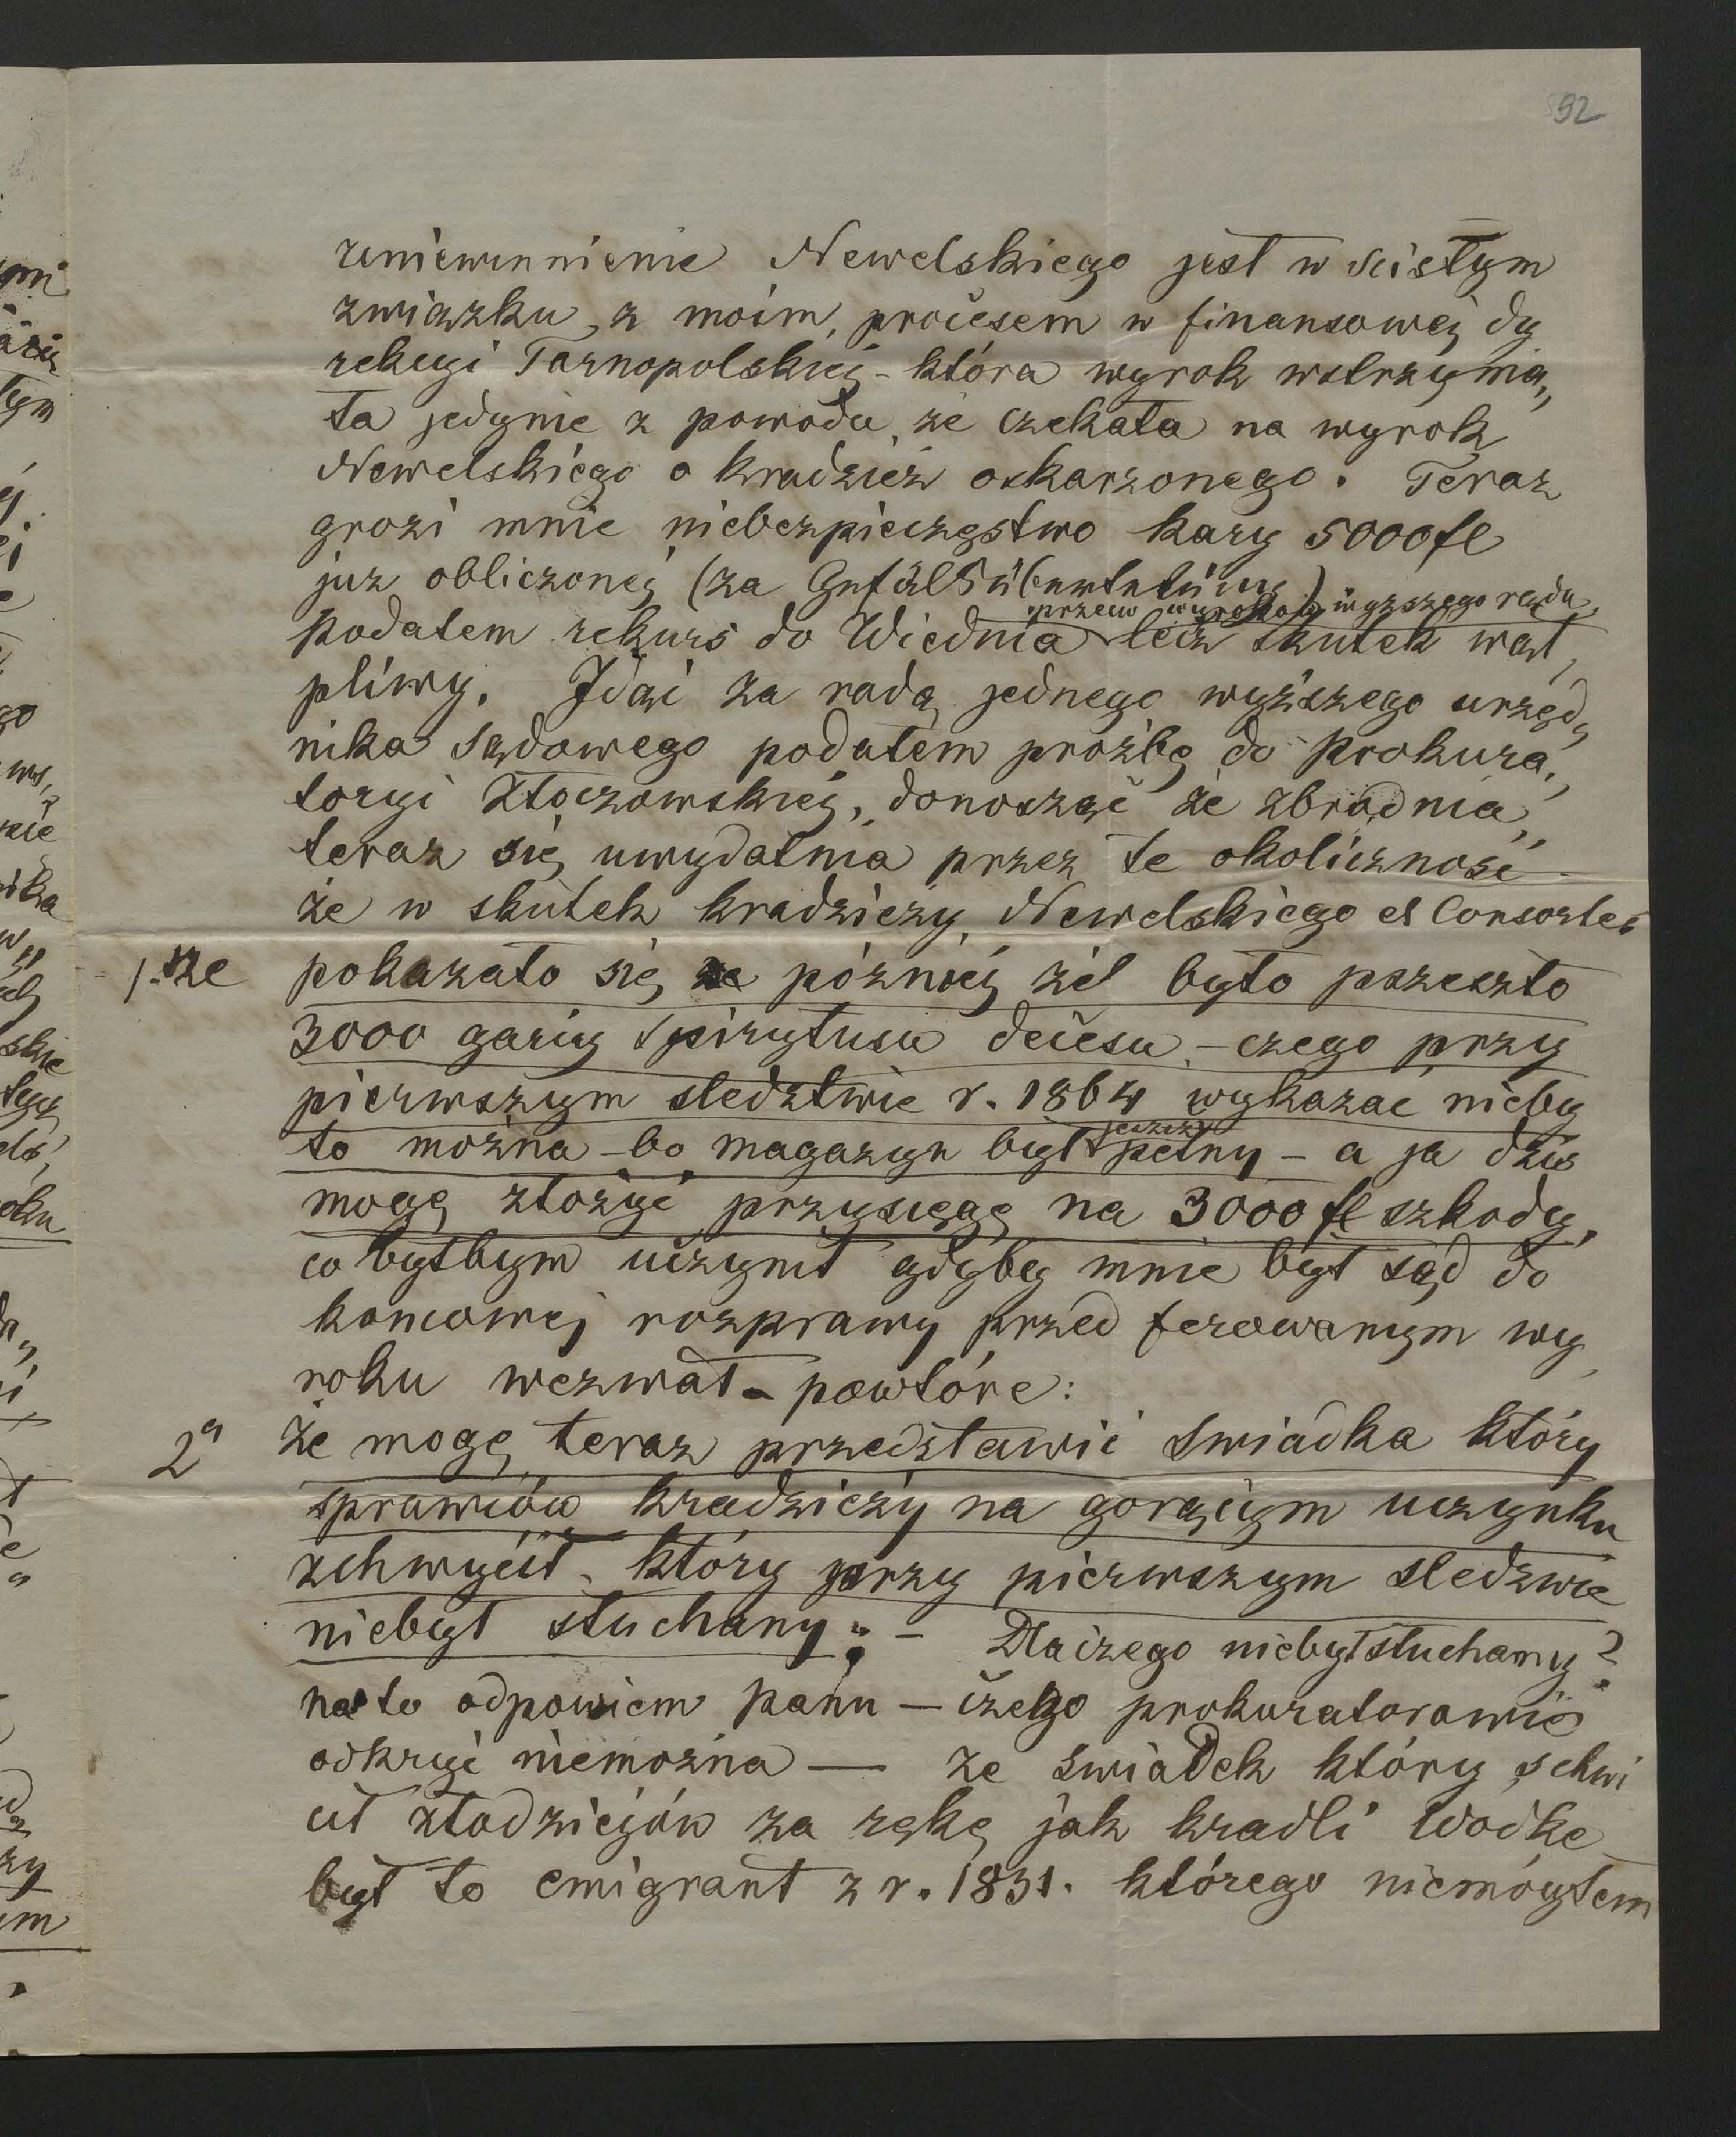 92
uniewinnienie Newelskiego jest w scisłym
związku, z moim, procesem w finansowej dy
rekcyi Tarnopolskiej - która wyrok wstrzyma„
ła jedynie z powodu, że czekała na wyrok
Newelskiego o kradzież oskarzonego. Teraz
grozi mnie niebezpieczęstwo kary 5000 fl
juz obliczonej (za Gefäls
przeciw wyrokowi wyższego sądu
podałem rekurs do Wiednia lecz skutek wąt„
pliwy. Idąc za radą jednego wyższego urzęd„
nika sądowego podałem prożbę do Prokura„
toryi Złoczowskiej, donosząc że zbrodnia
teraz się uwydatnia przez te okoliczność
że w skutek kradzieży Newelskiego et Consortes
1. że pokazało się później żel było przeszło
3000 garcy spirytusu decesu - czego przy
pierwszym sledztwie r. 1864 wykazac nieby
jeszcze
ło można - bo magazyn był pełny - a ja dziś
mogę złożyć przysięgę na 3000 fl szkody,
co byłbym uczynił gdyby mnie był sąd do
koncowej rozprawy przed ferowanym wy
roku wezwał - powtóre:
2° że mogę teraz przedstawić swiadka który
sprawców kradzieży na gorącym uczynku
zchwycił - który przy pierwszym sledzwie
niebył słuchany; - Dlaczego niebył słuchany?
na to odpowiem panu - czego prokuratorowie
odkryć niemożna — ze swiadek który schwi
cił złodziejów za rękę jak kradli wodkę
był to emigrant z r. 1831. którego niemógłem